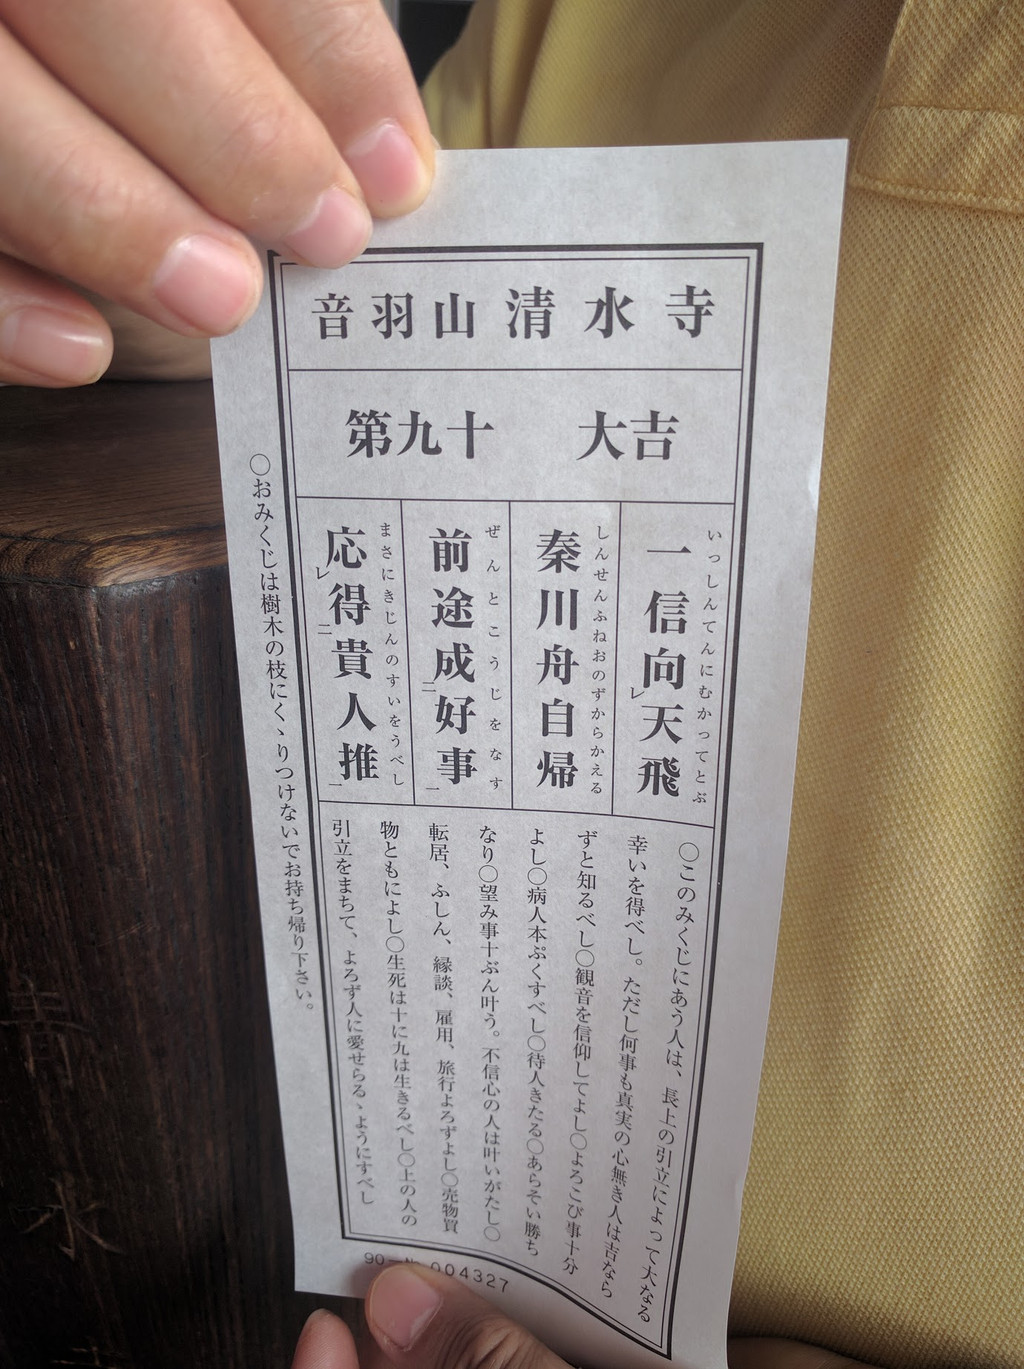 音羽山 清水寺
第九十 大吉
一信向レ天飛
いっしんてんにむかってとぶ
秦川舟自帰
しんせんふねおのずからかえる
前途成二好事一
ぜんとこうじをなす
応レ得二貴人推一
まさにきじんのすいをうべし
〇このみくじにあう人は、長上の引立によって大なる
幸いを得べし。ただし何事も真実の心無き人は吉なら
ずと知るべし〇観音を信仰してよし〇よろこび事十分
よし〇病人本ぷくすべし〇待人きたる〇あらそい勝ち
なり〇望み事十ぶん叶う。不信心の人は叶いがたし〇
転居、ふしん、縁談、雇用、旅行よろずよし〇売物買
物ともによし〇生死は十に九は生きるべし〇上の人の
引立をまちて、よろず人に愛せらるゝようにすべし
〇おみくじは樹木の枝にくゝりつけないでお持ち帰り下さい。
004327
水